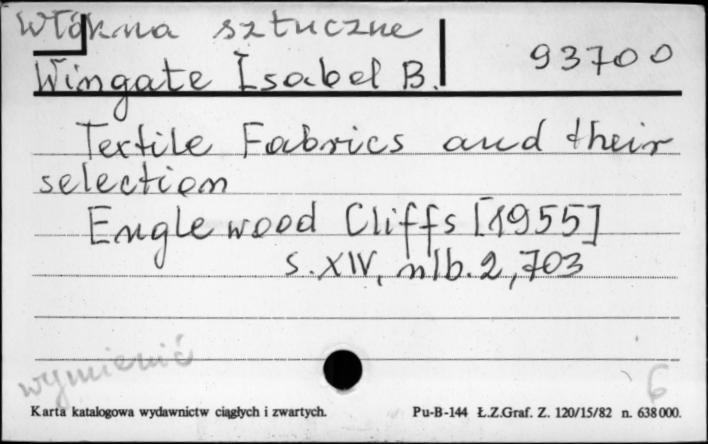 Włókna sztuczne
93700
Wingate Isabel B.
Textile Fabrics and their
selection
Englewood Cliffs [1955]
s. XIV, nlb. 2, 703
wymienić
6
Karta katalogowa wydawnictw ciągłych i zwartych. Pu-B-144 Ł.Z.Graf. Z. 120/15/82 n. 638 000.